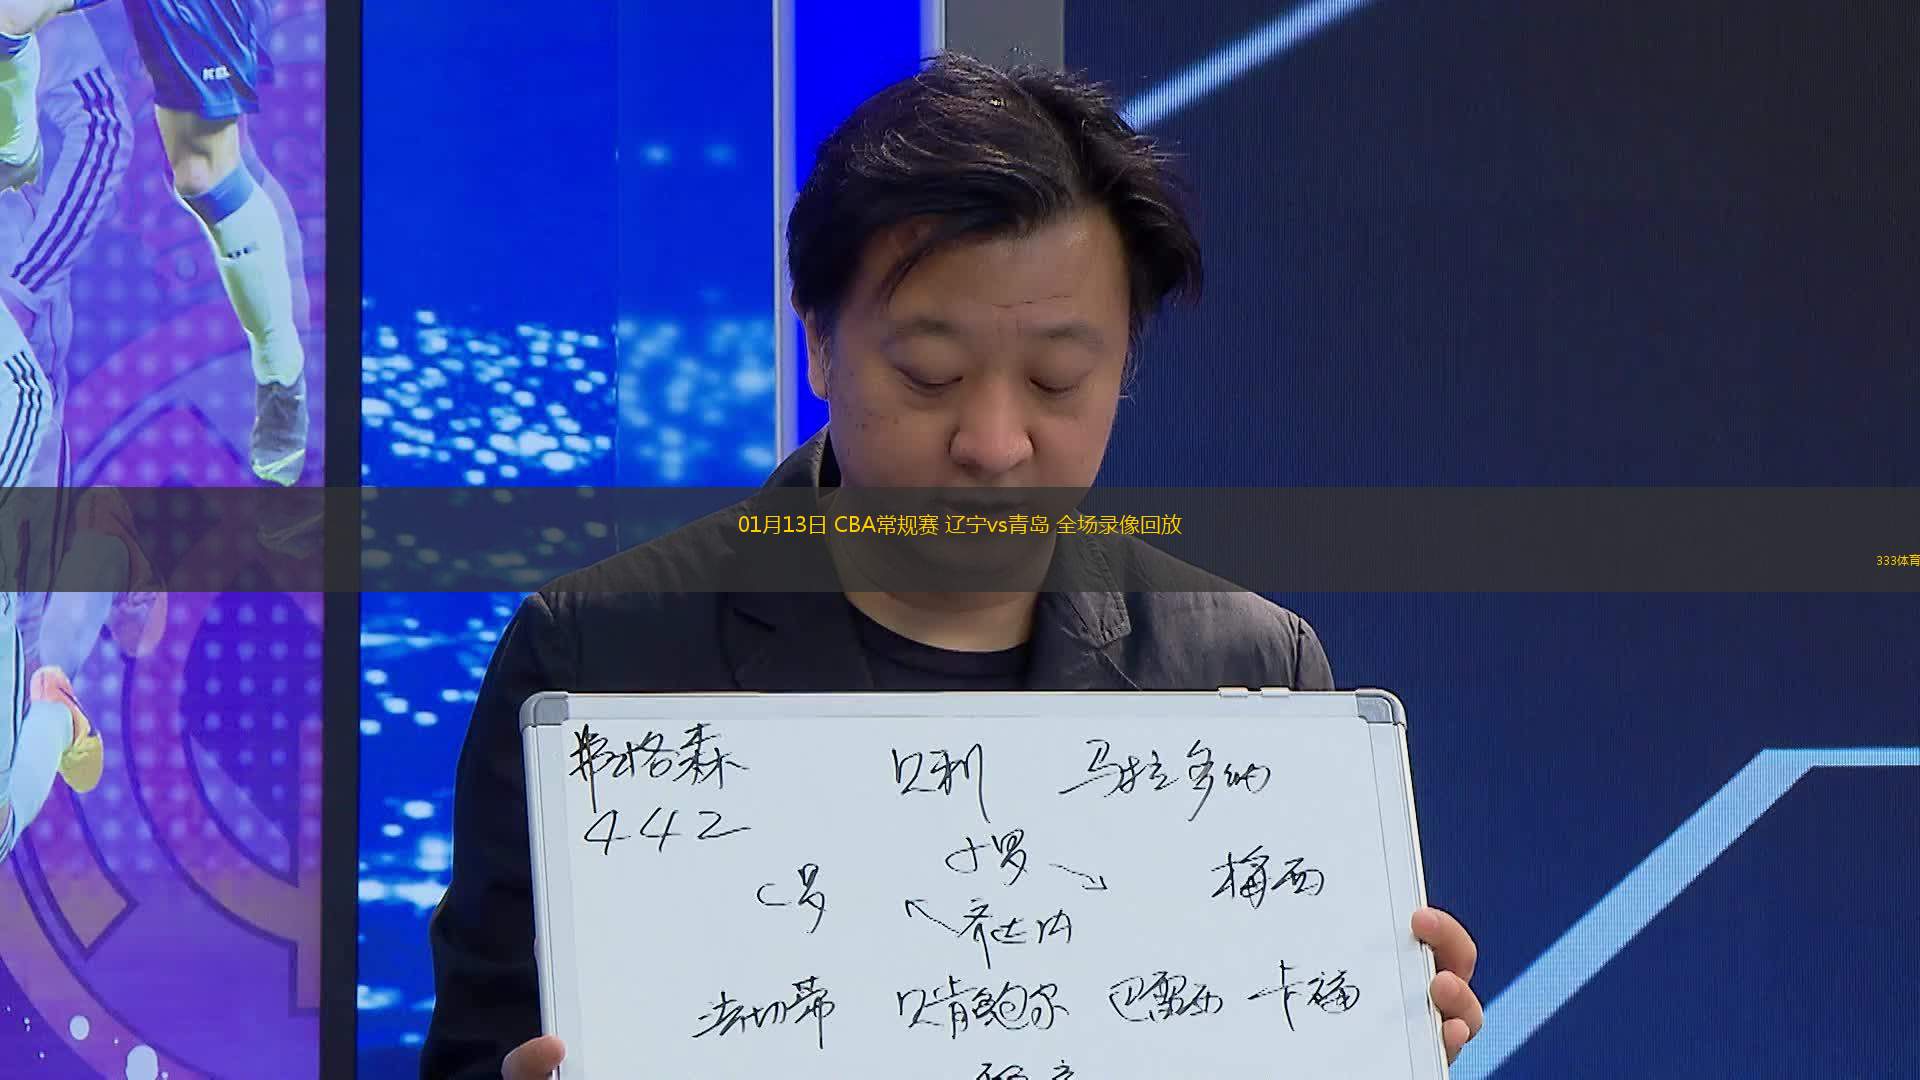 01月13日 CBA常规赛 辽宁vs青岛 全场录像回放
333体育
弗格森 贝利 马拉多纳
442
小罗
C罗 梅西
齐达内
法切蒂 贝肯鲍尔 巴雷西 卡福